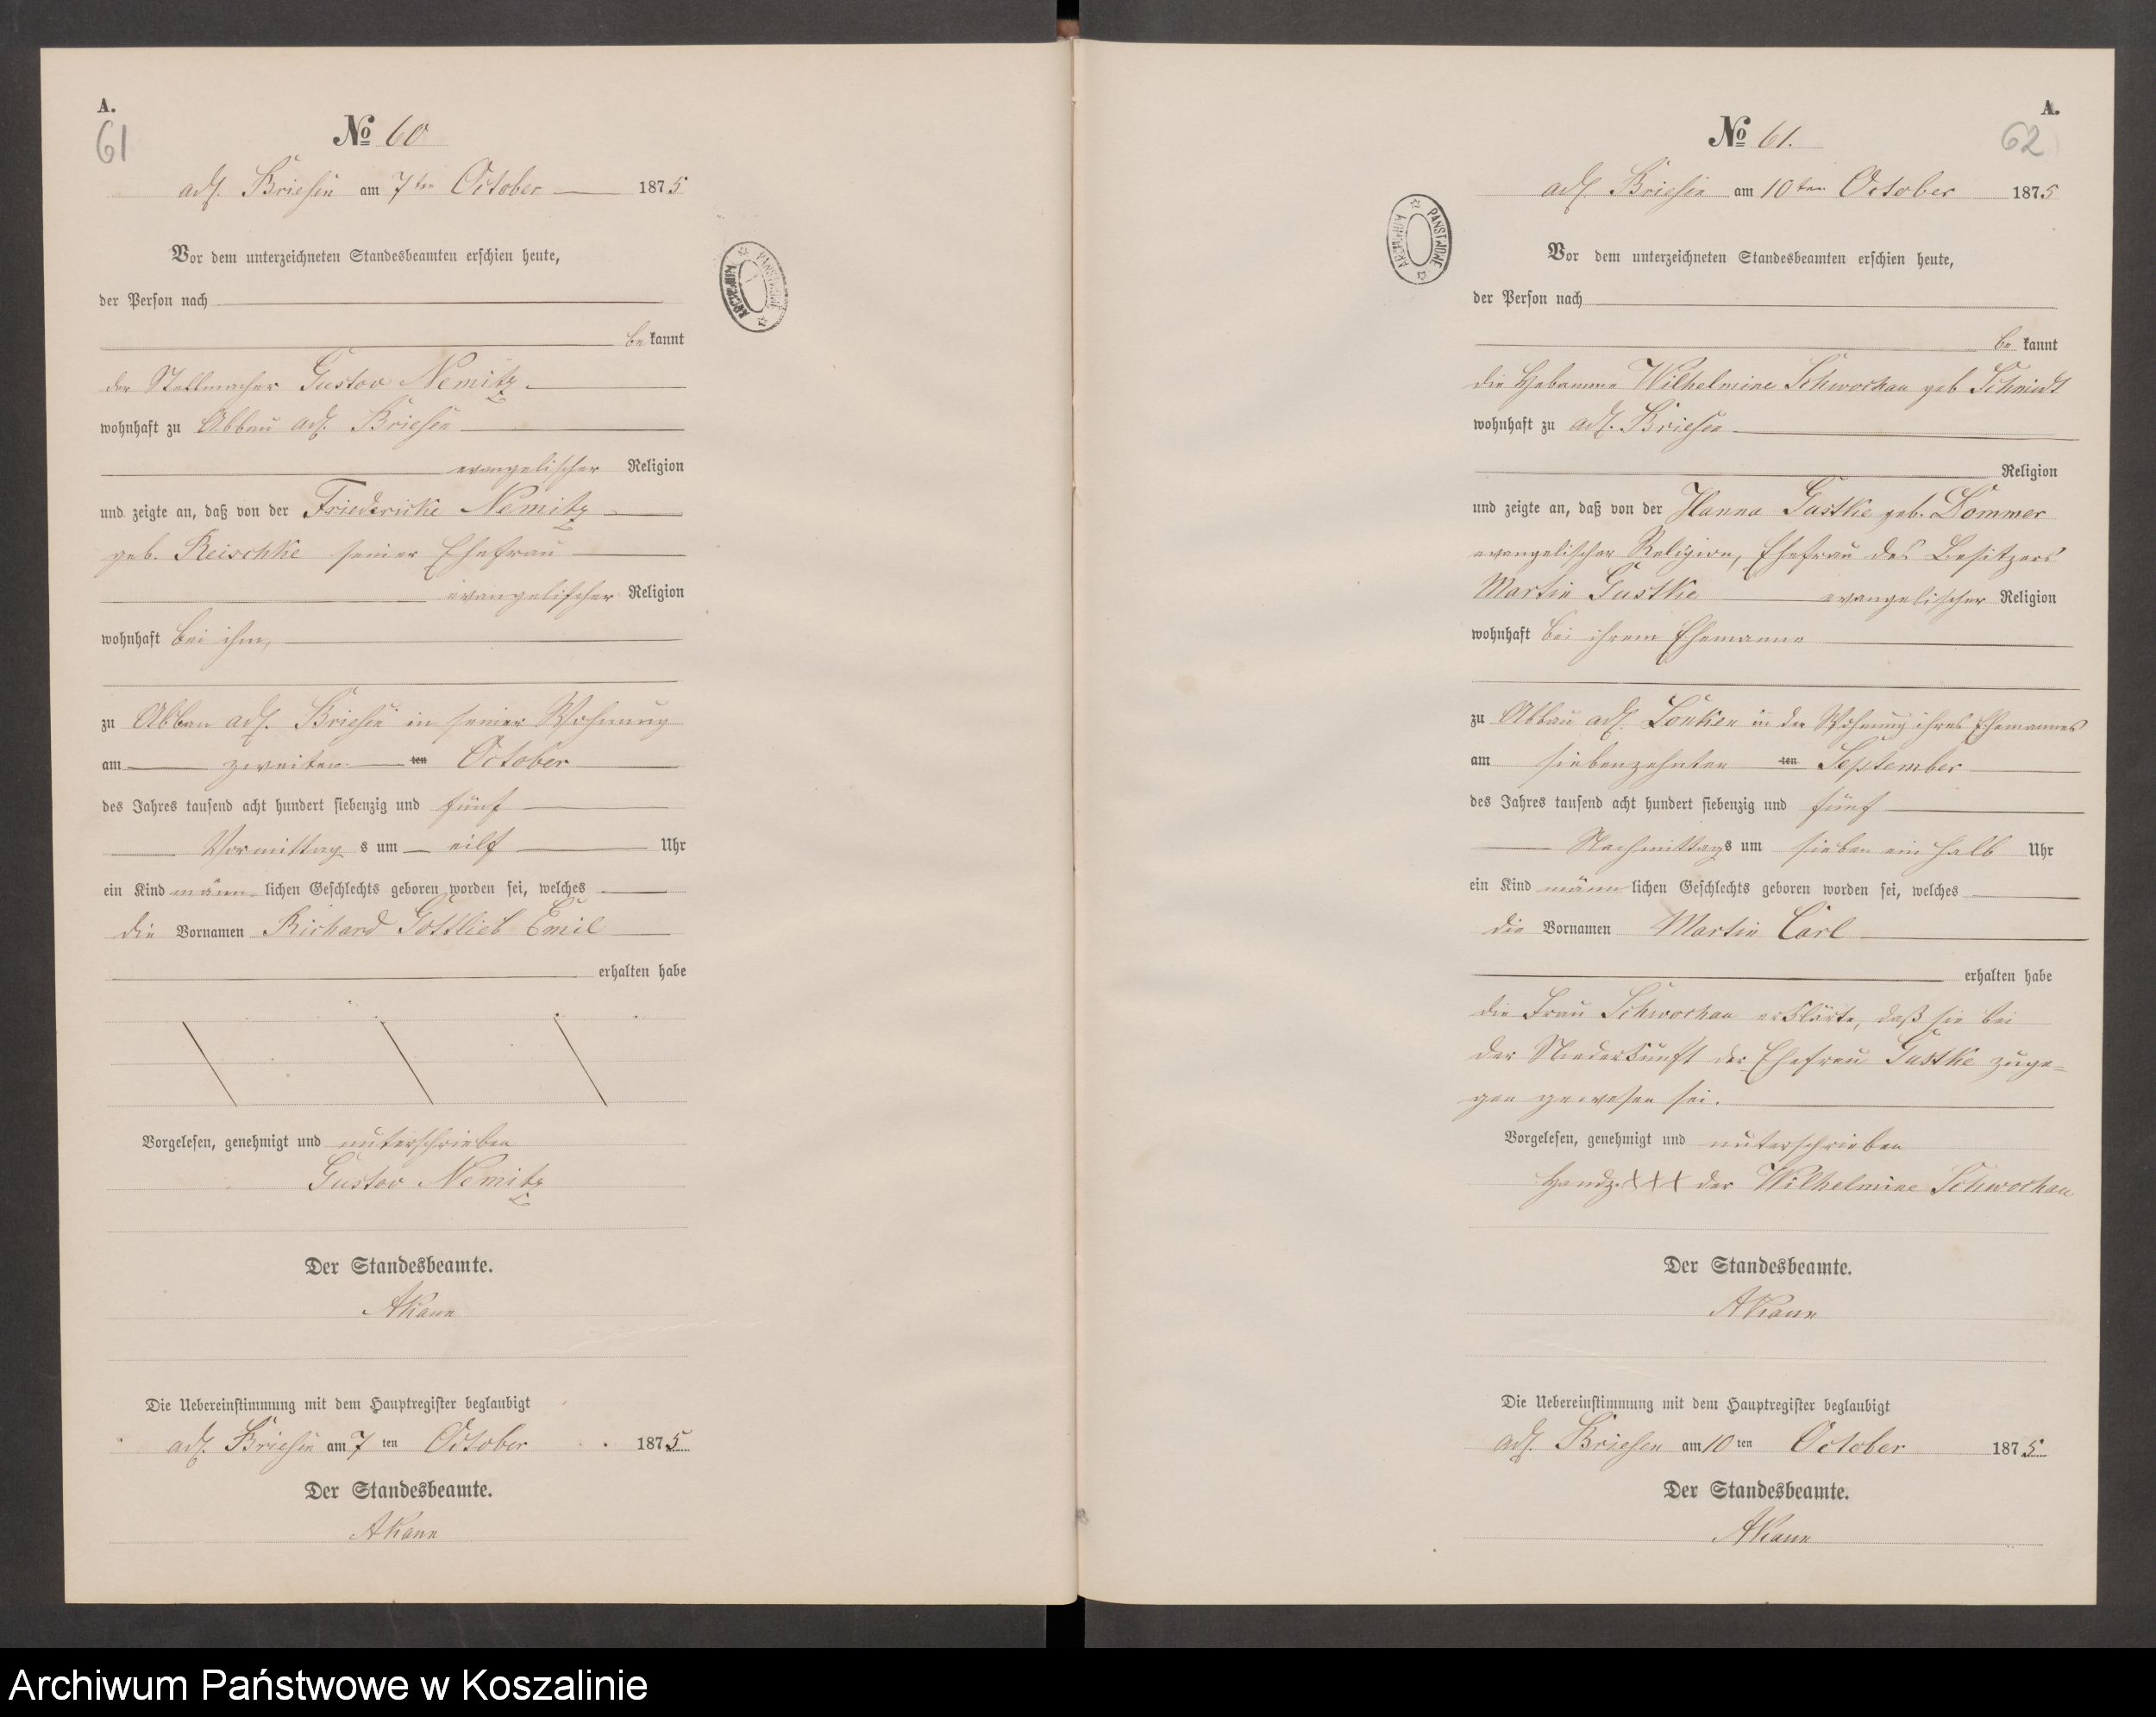 A.
61
No 60
adl. Briesen am 7ten October 1875
Vor dem unterzeichneten Standesbeamten erschien heute,
der Person nach
be kannt
der Stellmacher Gustav Nemitz
wohnhaft zu Abbau adl. Briesen
evangelischer Religion
und zeigte an, daß von der Friedericke Nemitz
geb. Reischke seiner Ehefrau
evangelischer Religion
wohnhaft bei ihm,
zu Abbau adl. Briesen in seiner Wohnung
am zweiten ten October
des Jahres tausend acht hundert siebenzig und fünf
Vormittag s um eilf Uhr
ein Kind männ lichen Geschlechts geboren worden sei, welches
die Vornamen Richard Gottlieb Emil
erhalten habe
Vorgelesen, genehmigt und unterschrieben
Gustav Nemitz
Der Standesbeamte.
AKann
Die Uebereinstimmung mit dem Hauptregister beglaubigt
adl. Briesen am 7 ten October 1875
Der Standesbeamte.
AKann
ARCHIWUM PAŃSTWOWE
A.
62
No 61.
adl. Briesen am 10ten October 1875
ARCHIWUM PAŃSTWOWE
Vor dem unterzeichneten Standesbeamten erschien heute,
der Person nach
be kannt
die Hebamme Wilhelmine Schwochau geb Schmidt
wohnhaft zu adl. Briesen
Religion
und zeigte an, daß von der Hanna Gustke geb. Dommer
evangelischer Religion, Ehefrau des Besitzers
Martin Gustke evangelischer Religion
wohnhaft bei ihrem Ehemanne
zu Abbau adl. Lonken in der Wohnung ihres Ehemannes
am siebenzehnten ten September
des Jahres tausend acht hundert siebenzig und fünf
Nachmittags um sieben ein halb Uhr
ein Kind männ lichen Geschlechts geboren worden sei, welches
die Vornamen Martin Carl
erhalten habe
die Frau Schwochau erklärte, daß sie bei
der Niederkunft der Ehefrau Gustke zuge=
gen gewesen sei.
Vorgelesen, genehmigt und unterschrieben
Handz. XXX der Wilhelmine Schwochau
Der Standesbeamte.
AKann
Die Uebereinstimmung mit dem Hauptregister beglaubigt
adl. Briesen am 10 ten October 1875
Der Standesbeamte.
AKann
Archiwum Państwowe w Koszalinie